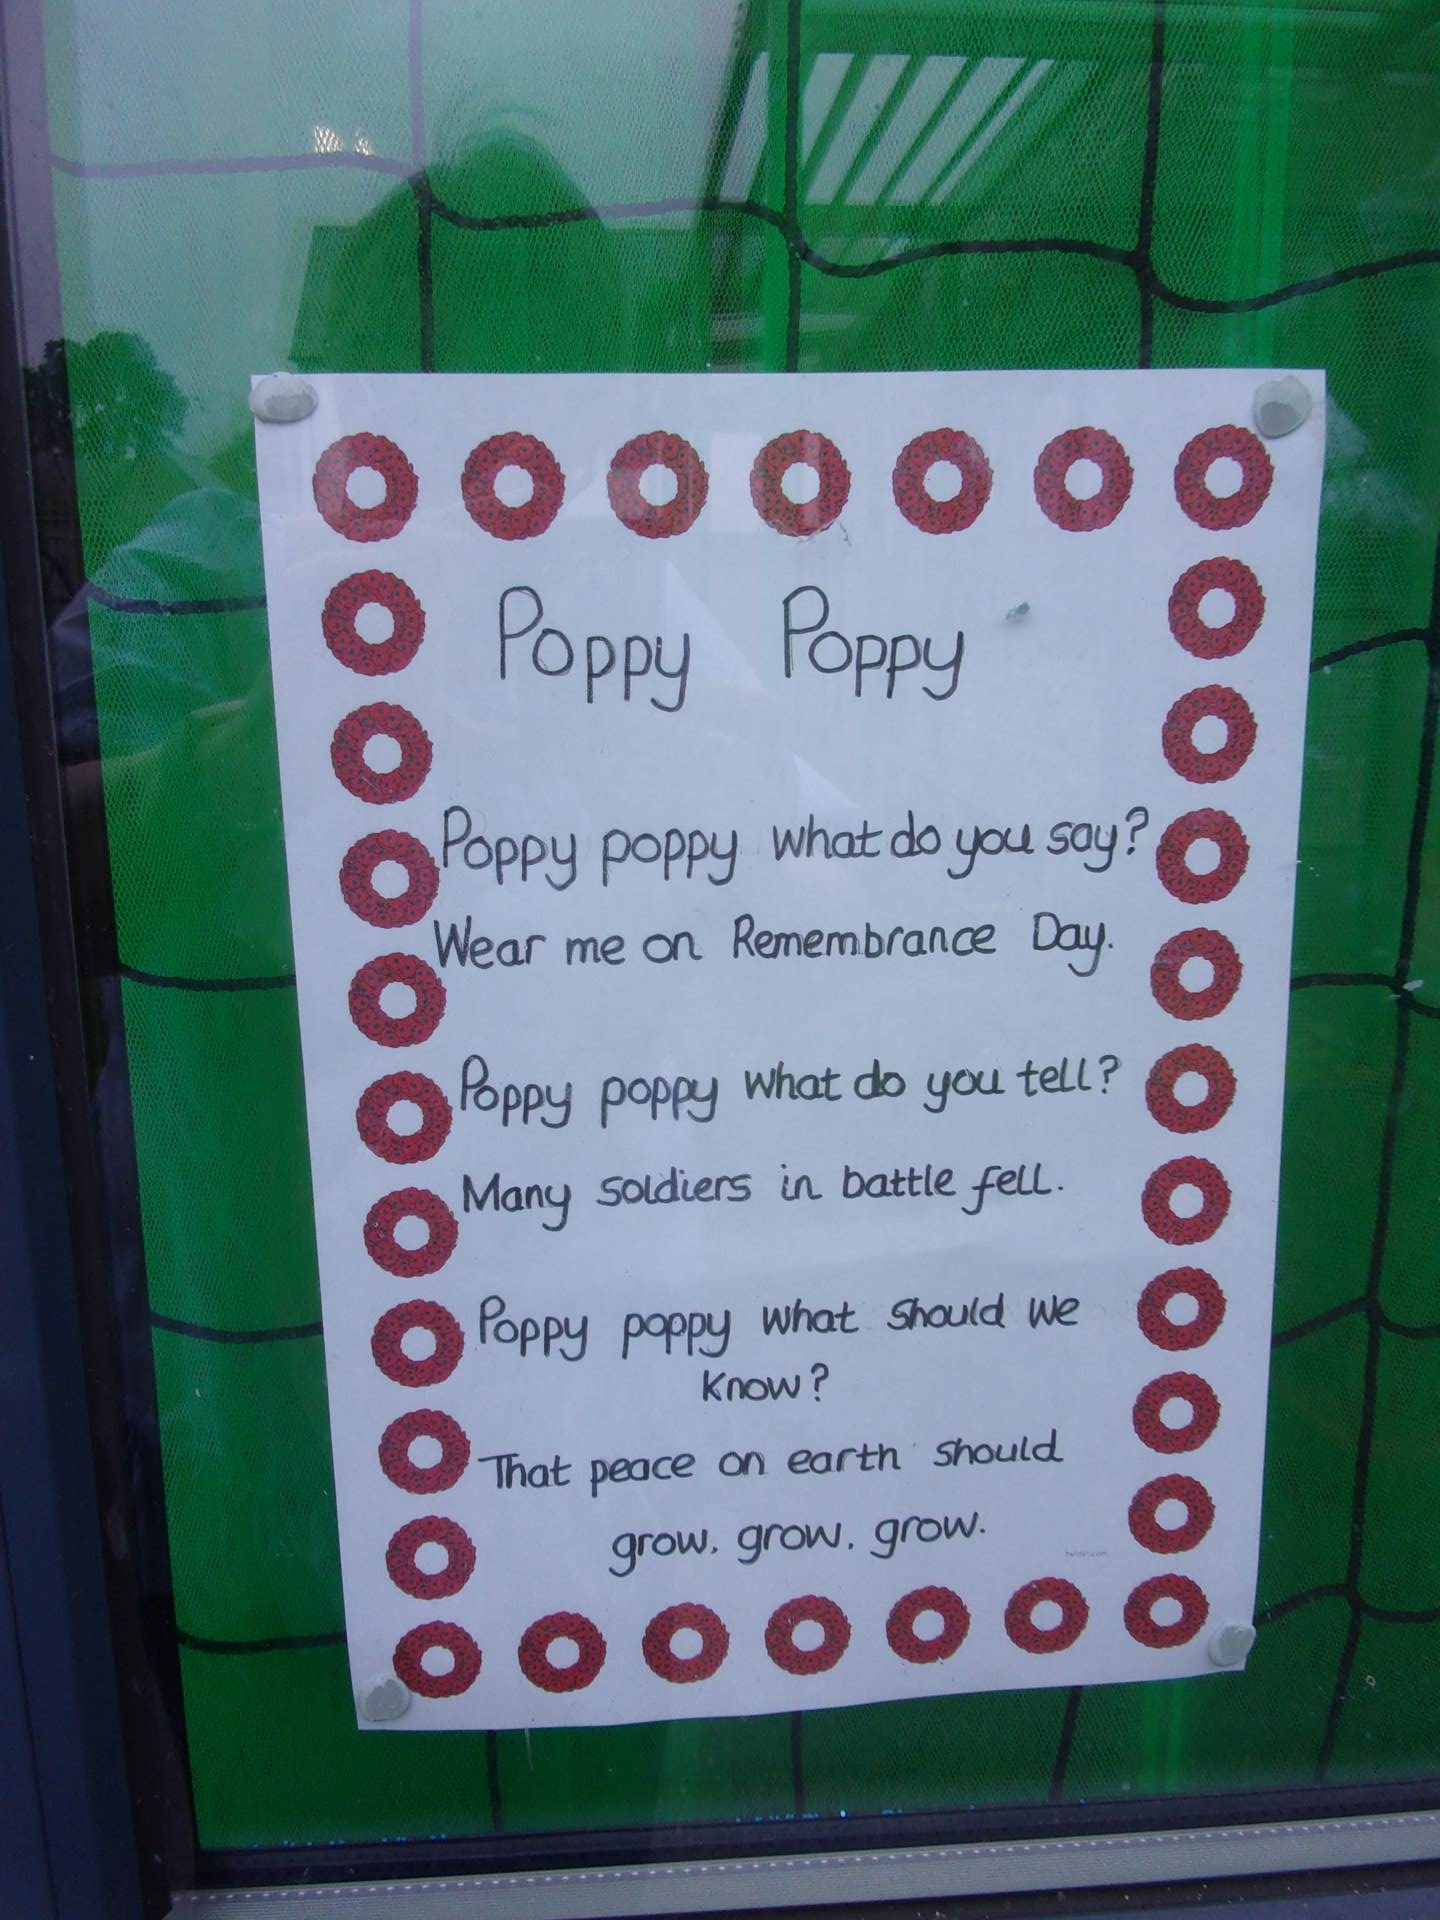 Poppy Poppy
Poppy poppy what do you say?
Wear me on Remembrance Day.
Poppy poppy what do you tell?
Many soldiers in battle fell.
Poppy poppy what should we
know?
That peace on earth should
grow. grow. grow.
twinkl.com